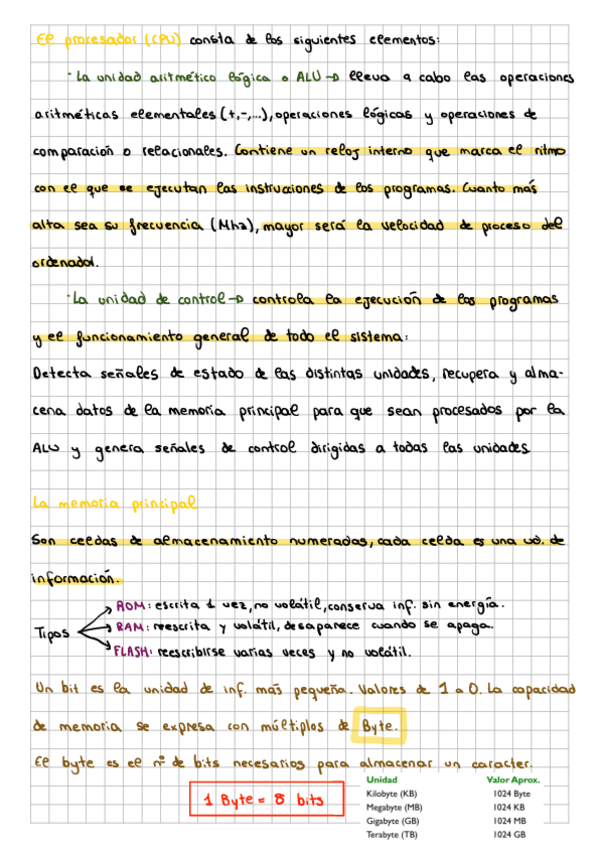 El procesador (CPU) consta de los siguientes elementos:
· La unidad aritmético lógica o ALU → lleva a cabo las operaciones
aritméticas elementales (+,-,...), operaciones lógicas y operaciones de
comparación o relacionales. Contiene un reloj interno que marca el ritmo
con el que se ejecutan las instrucciones de los programas. Cuanto más
alta sea su frecuencia (Mhz), mayor será la velocidad de proceso del
ordenador.
· La unidad de control → controla la ejecución de los programas
y el funcionamiento general de todo el sistema:
Detecta señales de estado de las distintas unidades, recupera y alma-
cena datos de la memoria principal para que sean procesados por la
ALU y genera señales de control dirigidas a todas las unidades
La memoria principal
Son celdas de almacenamiento numeradas, cada celda es una ud. de
información.
ROM: escrita 1 vez, no volátil, conserva inf. sin energía.
Tipos → RAM: reescrita y volátil, desaparece cuando se apaga.
FLASH: reescribirse varias veces y no volátil.
Un bit es la unidad de inf. más pequeña. Valores de 1 a 0. La capacidad
de memoria se expresa con múltiplos de Byte.
El byte es el nº de bits necesarios para almacenar un caracter.
1 Byte = 8 bits
Unidad Valor Aprox.
Kilobyte (KB) 1024 Byte
Megabyte (MB) 1024 KB
Gigabyte (GB) 1024 MB
Terabyte (TB) 1024 GB